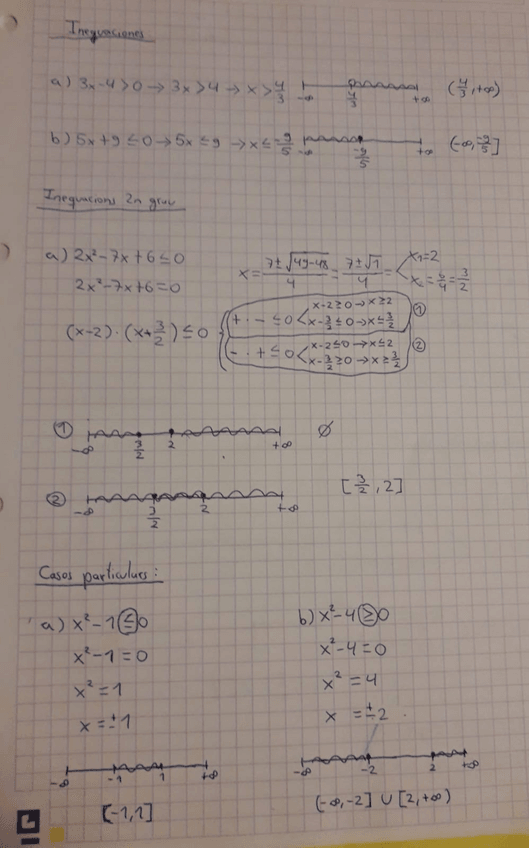 Inequaciones
a) 3x-4>0 → 3x>4 → x>4/3 -∞ 4/3 +∞ (4/3, +∞)
b) 5x+9≤0 → 5x≤9 → x≤-9/5 -∞ -9/5 +∞ (-∞, -9/5]
Inequacions 2n grau
a) 2x²-7x+6≤0 x = 7±√49-48 / 4 = 7±√1 / 4 = x₁=2
2x²-7x+6=0 x₂=6/4=3/2
(x-2)·(x+3/2)≤0 + · - ≤0 x-2≥0 → x≥2 ①
x-3/2≤0 → x≤3/2
- · + ≤0 x-2≤0 → x≤2 ②
x-3/2≥0 → x≥3/2
① -∞ 3/2 2 +∞ ∅
② -∞ 3/2 2 +∞ [3/2, 2]
Casos particulars:
a) x²-1≤0 b) x²-4≥0
x²-1=0 x²-4=0
x²=1 x²=4
x=±1 x=±2
-∞ -1 1 +∞ -∞ -2 2 +∞
[-1,1] (-∞,-2] ∪ [2,+∞)